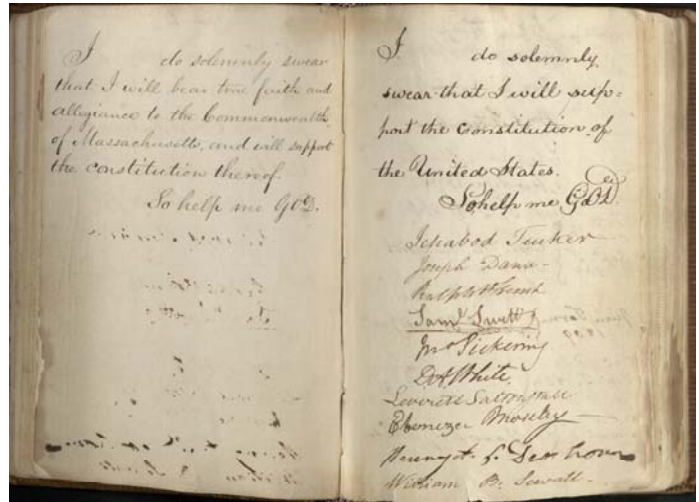 I do solemnly swear
that I will bear true faith and
allegiance to the Commonwealth
of Massachusetts, and will support
the constitution thereof.
So help me GOD.
I do solemnly,
swear that I will sup=
port the constitution of
the United States.
So help me GOD.
Ichabod Tucker
Joseph Dana
Ralph H. French
Saml Swett
Jno Pickering
D A White.
Leverett Saltonstall
Ebenezer Moseley
Dearborn
William B. Sewall.